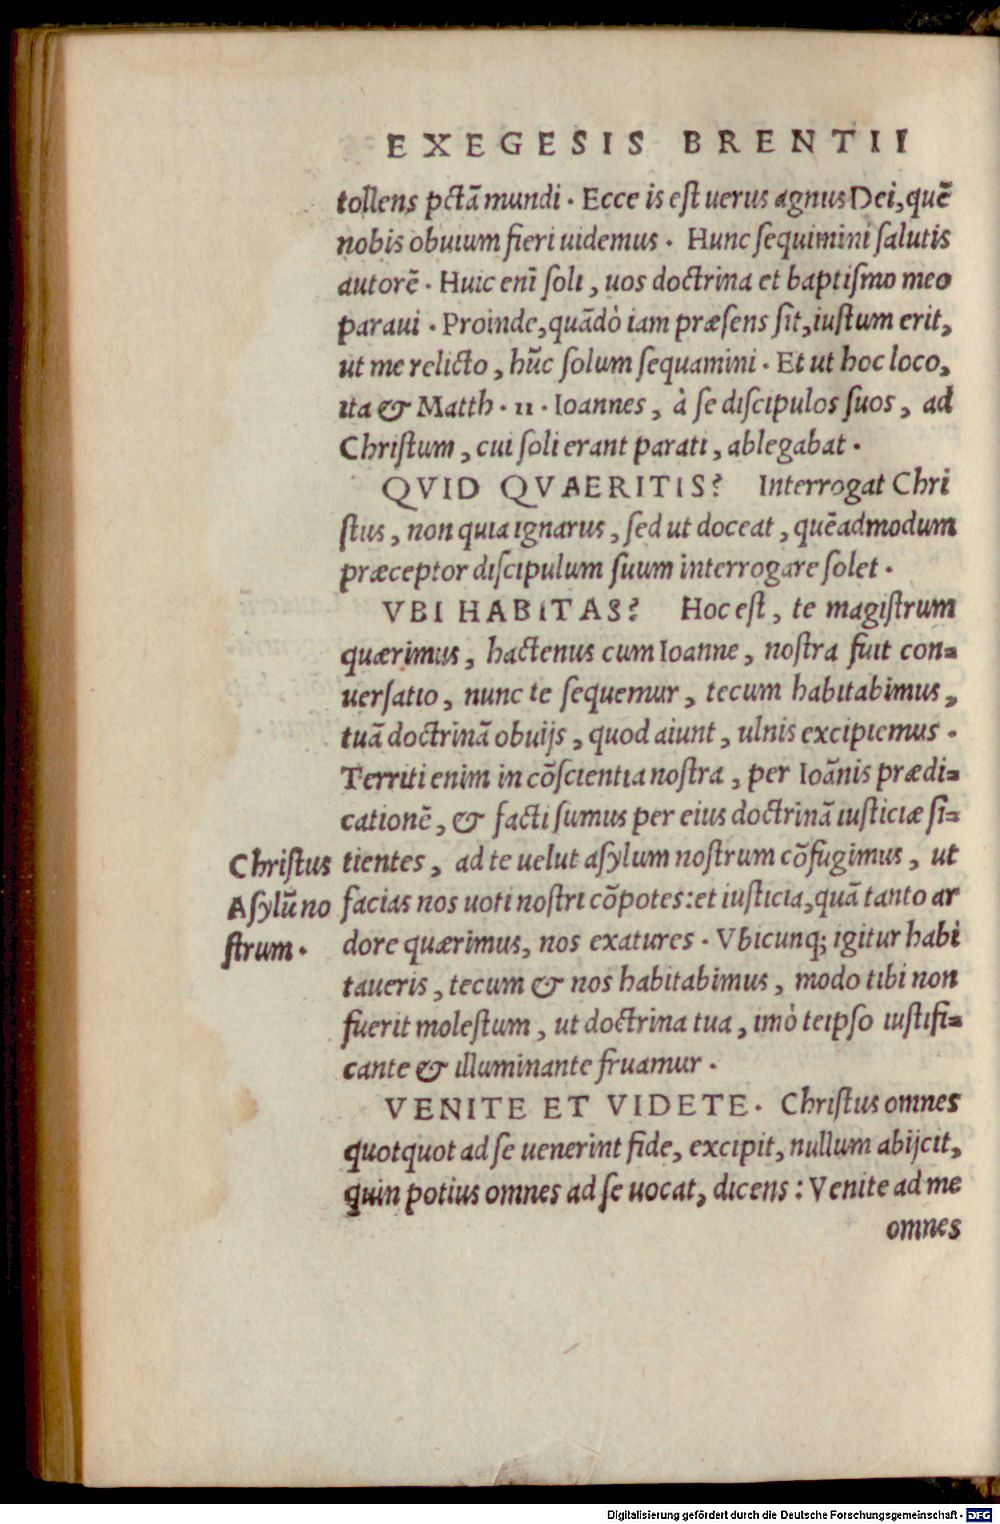 EXEGESIS BRENTII
tollens pctā mundi . Ecce is eſt uerus agnus Dei, quē
nobis obuium fieri uidemus . Hunc ſequimini ſalutis
autorē . Huic enī ſoli , uos doctrina et baptiſmo meo
paraui . Proinde, quādò iam præſens ſit, iuſtum erit,
ut me relicto , hūc ſolum ſequamini . Et ut hoc loco,
ita & Matth . 11 . Ioannes , à ſe diſcipulos ſuos , ad
Chriſtum , cui ſoli erant parati , ablegabat .
QVID QVAERITIS? Interrogat Chri
ſtus , non quia ignarus , ſed ut doceat , quēadmodum
præceptor diſcipulum ſuum interrogare ſolet .
VBI HABITAS? Hoc eſt , te magiſtrum
quærimus , hactenus cum Ioanne , noſtra fuit con=
uerſatio , nunc te ſequemur , tecum habitabimus ,
tuā doctrinā obuijs , quod aiunt , ulnis excipiemus .
Territi enim in cōſcientia noſtra , per Ioānis prædi=
cationē , & facti ſumus per eius doctrinā iuſticiæ ſi=
tientes , ad te uelut aſylum noſtrum cōfugimus , ut
facias nos uoti noſtri cōpotes: et iuſticia, quā tanto ar
dore quærimus, nos exatures . Vbicunq; igitur habi
taueris , tecum & nos habitabimus , modo tibi non
fuerit moleſtum , ut doctrina tua , imò teipſo iuſtifi=
cante & illuminante fruamur .
Chriſtus
Aſylū no
ſtrum .
VENITE ET VIDETE . Chriſtus omnes
quotquot ad ſe uenerint fide, excipit, nullum abijcit,
quin potius omnes ad ſe uocat, dicens : Venite ad me
omnes
Digitalisierung gefördert durch die Deutsche Forschungsgemeinschaft - DFG